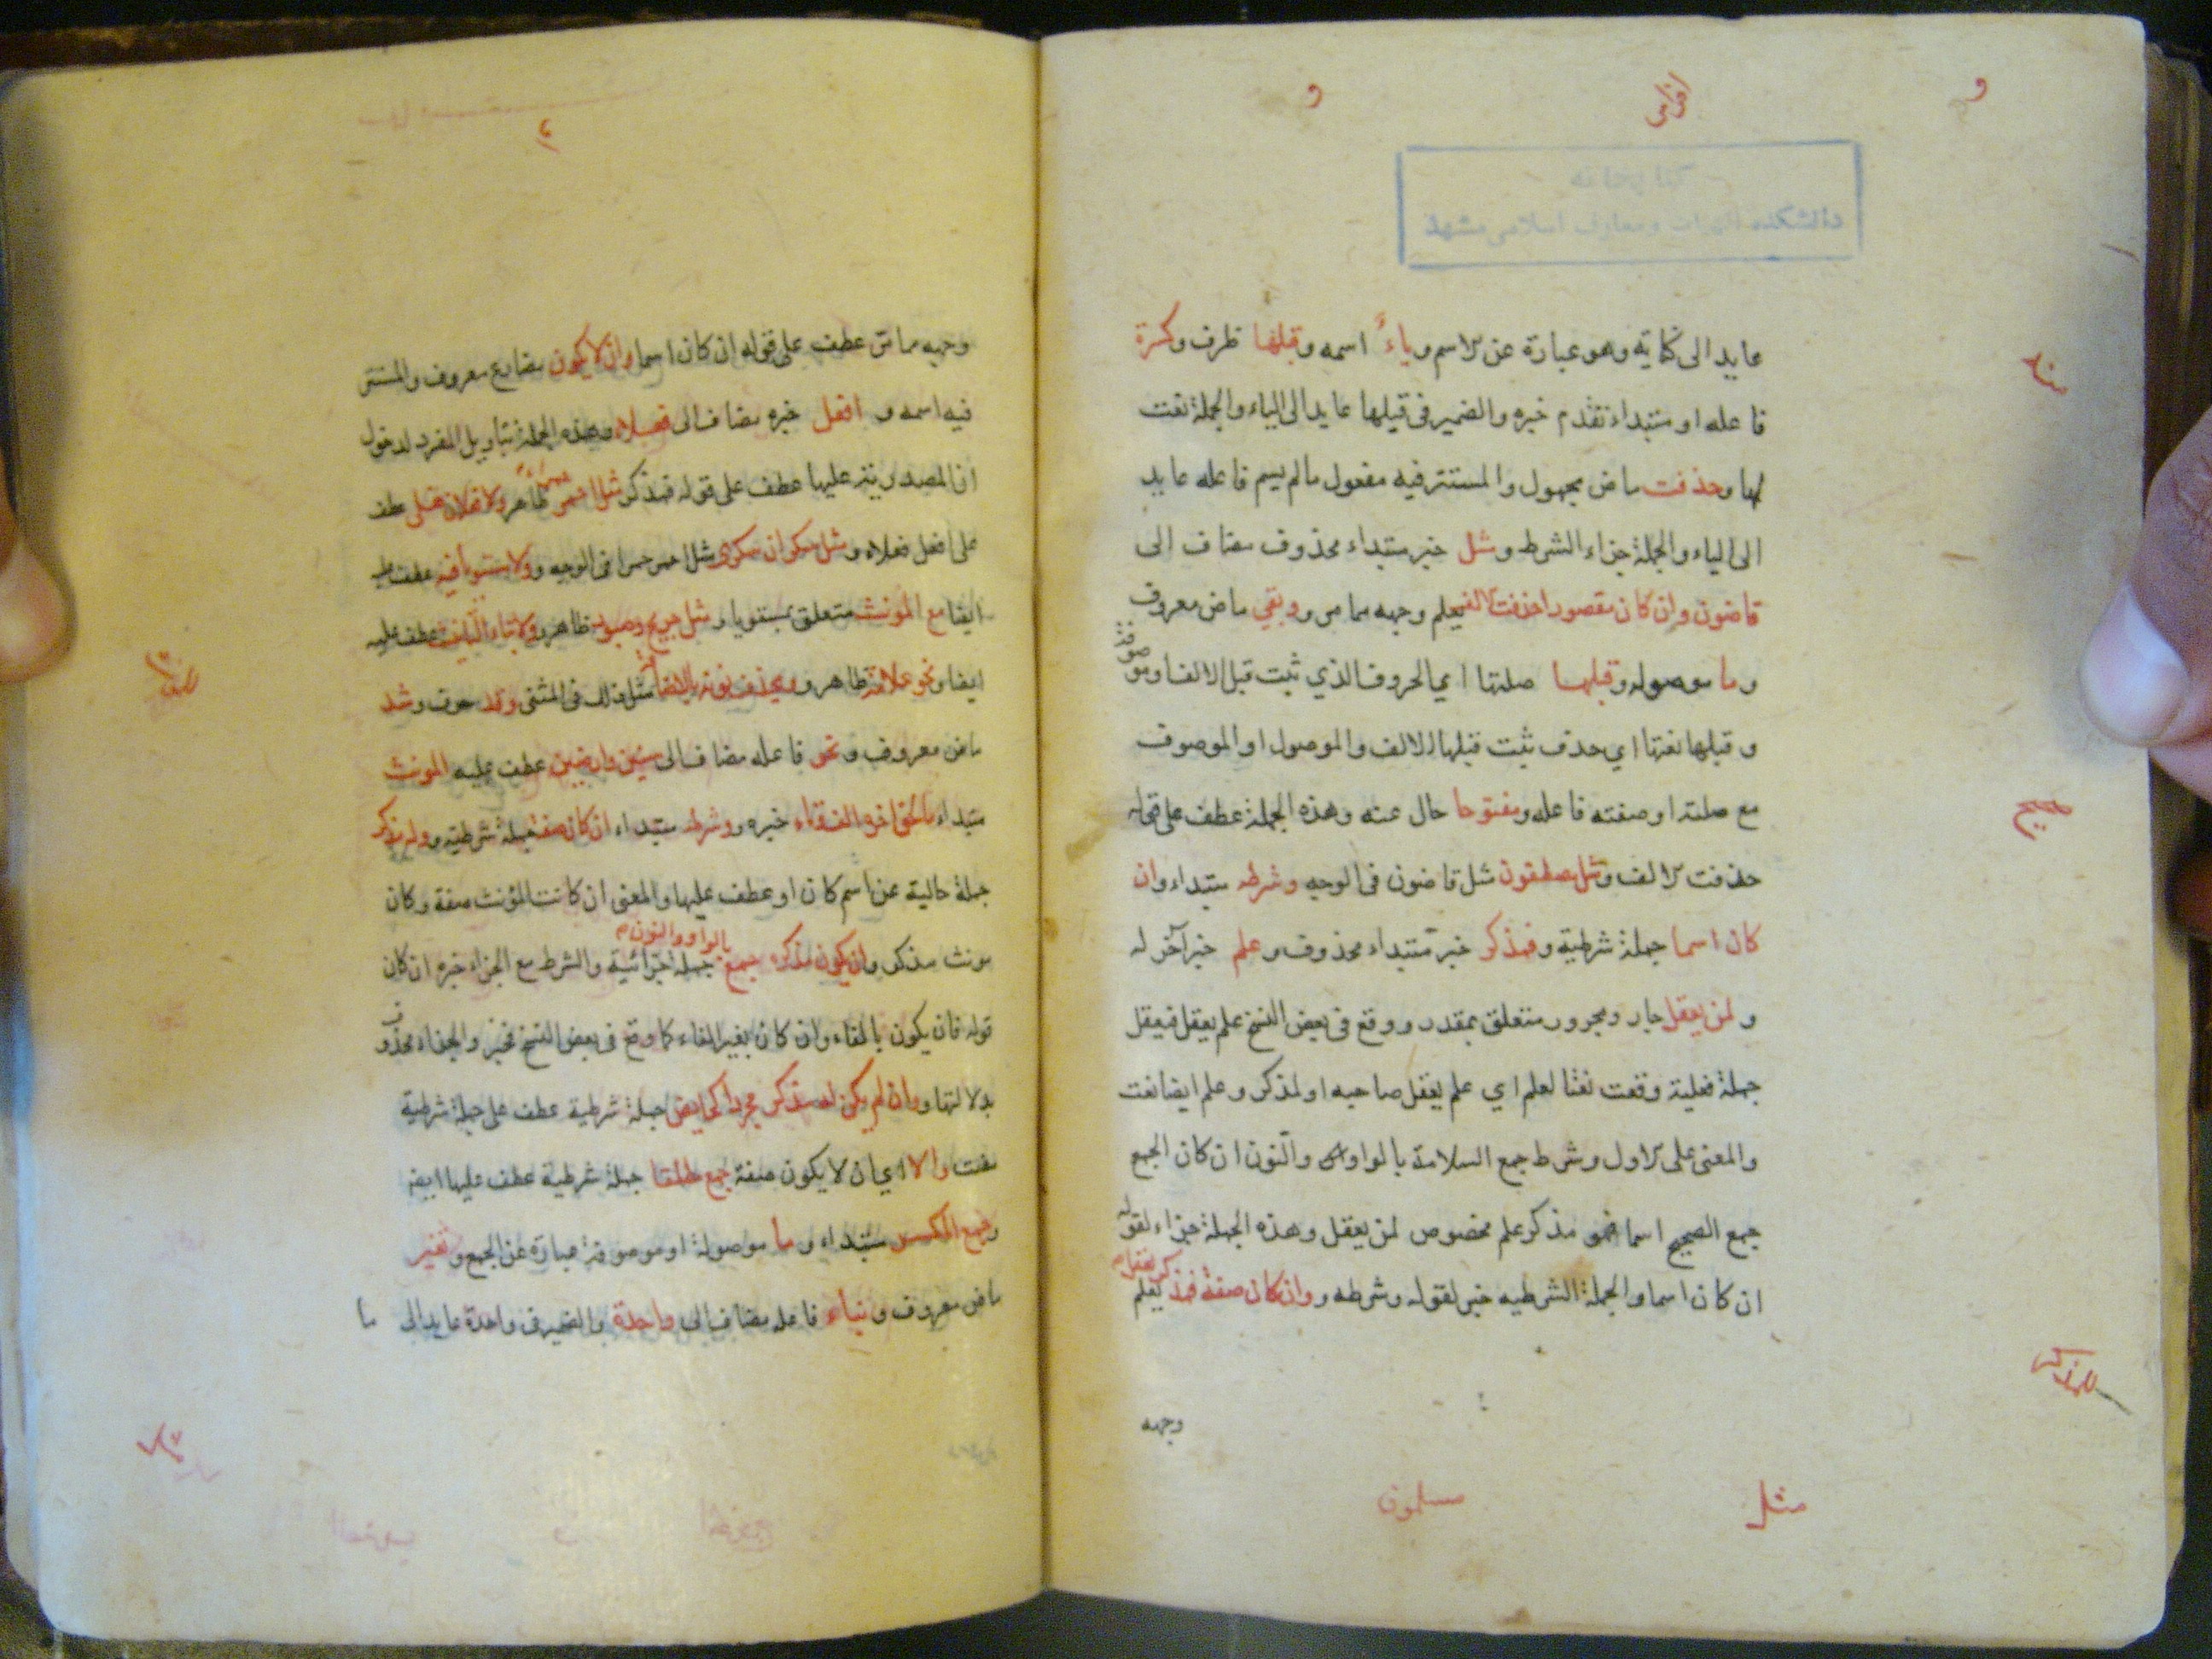 عايد الى كناية وهو عبارة عن الاسم وياء اسمه وقبلها ظرف وكسرة
فاعله او مبتداء تقدم خبره والضمير في قبلها عايد الى الياء والجملة نعت
لها وحذفت ماض مجهول والمستتر فيه مفعول مالم يسم فاعله عايد
الى الياء والجملة جزاء الشرط ومثل خبر مبتداء محذوف مضاف الى
قاضون وان كان مقصورا حذفت الالف يعلم وجهه مما مر وبقي ماض معروف
وما موصوله وقبلها صلتها اي الحروف الذي ثبت قبل الالف او موصوفة
وقبلها نعتها اي حذف ثبت قبلها الالف والموصول او الموصوف
مع صلته او صفته فاعله ومفتوحا حال عنه وهذه الجملة عطف على قوله
حذفت الالف ومثل مصطفون مثل قاضون في الوجه وشرطه مبتداء وان
كان اسما جملة شرطية وفمذكر خبر مبتداء محذوف وعلم خبر آخر له
ولمن يعقل جار ومجرور متعلق بمقدر ووقع في بعض النسخ علم يعقل فيعقل
جملة فعلية وقعت نعتا لعلم اي علم يعقل صاحبه او لمذكر وعلم ايضا نعت
والمعنى على الاول وشرط جمع السلامة بالواو والنون ان كان الجمع
جمع الصحيح اسما فهو مذكر علم مخصوص لمن يعقل وهذه الجملة جزاء لقوله
ان كان اسما والجملة الشرطيه خبر لقوله وشرطه و وان كان صفة فمذكر يعقل يعلم
وجهه
مسلمون
مثل
وجهه مما مر عطف على قوله ان كان اسما وان لا يكون مضارع معروف والمستتر
فيه اسمه و افعل خبره مضاف الى فعلاء وهذه الجملة بتاويل المفرد لدخول
ان المصدرية عليها عطف على قوله فمذكر مثل احمر حمراء ظاهر ولا فعلان فعلى عطف
على افعل فعلاء ومثل سكران سكرى مثل احمر حمرا في الوجه وولا مستويا فيه عطف عليه
ايضا مع المونث متعلق بمستويا ومثل جريح وصبور ظاهر وولا بتاء التانيث عطف عليه
ايضا ونحو علامة ظاهر و ويحذف نونه بالاضافة مثل ذلك في المثنى وقد حرف وشذ
ماض معروف ونحو فاعله مضاف الى سنين وارضين عطف عليه المونث
مبتداء ما لحق اخره الف وتاء خبره ووشرطه مبتداء ان كان صفة جملة شرطية ووله مذكر
جملة حالية عن اسم كان او عطف عليها والمعنى ان كانت المؤنث صفة وكان
مونث مذكر وان يكون مذكره جمع بالواو والنون جملة جزائية والشرط مع الجزاء خبره ان كان
قوله فان يكون بالفاء وان كان بغير الفاء كما وقع في بعض النسخ فخبر والجزاء محذوف
بدلالتها و وان لم يكن له مذكر مجردا كحايض جملة شرطية عطف على جملة شرطية
سبقت والا اي ان لا يكون صفة جمع مطلقا جملة شرطية عطف عليها ايضا
وجمع المكسر مبتداء و ما موصولة او موصوفة عبارة عن الجمع و تغير
ماض معروف و بناء فاعله مضاف الى واحدة والضمير في واحدة عايد الى ما